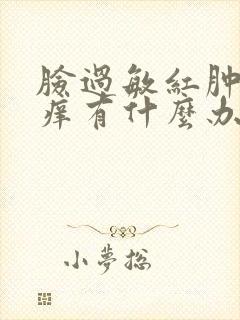 臉過敏紅肿
痒有什麼办
小夢嵸